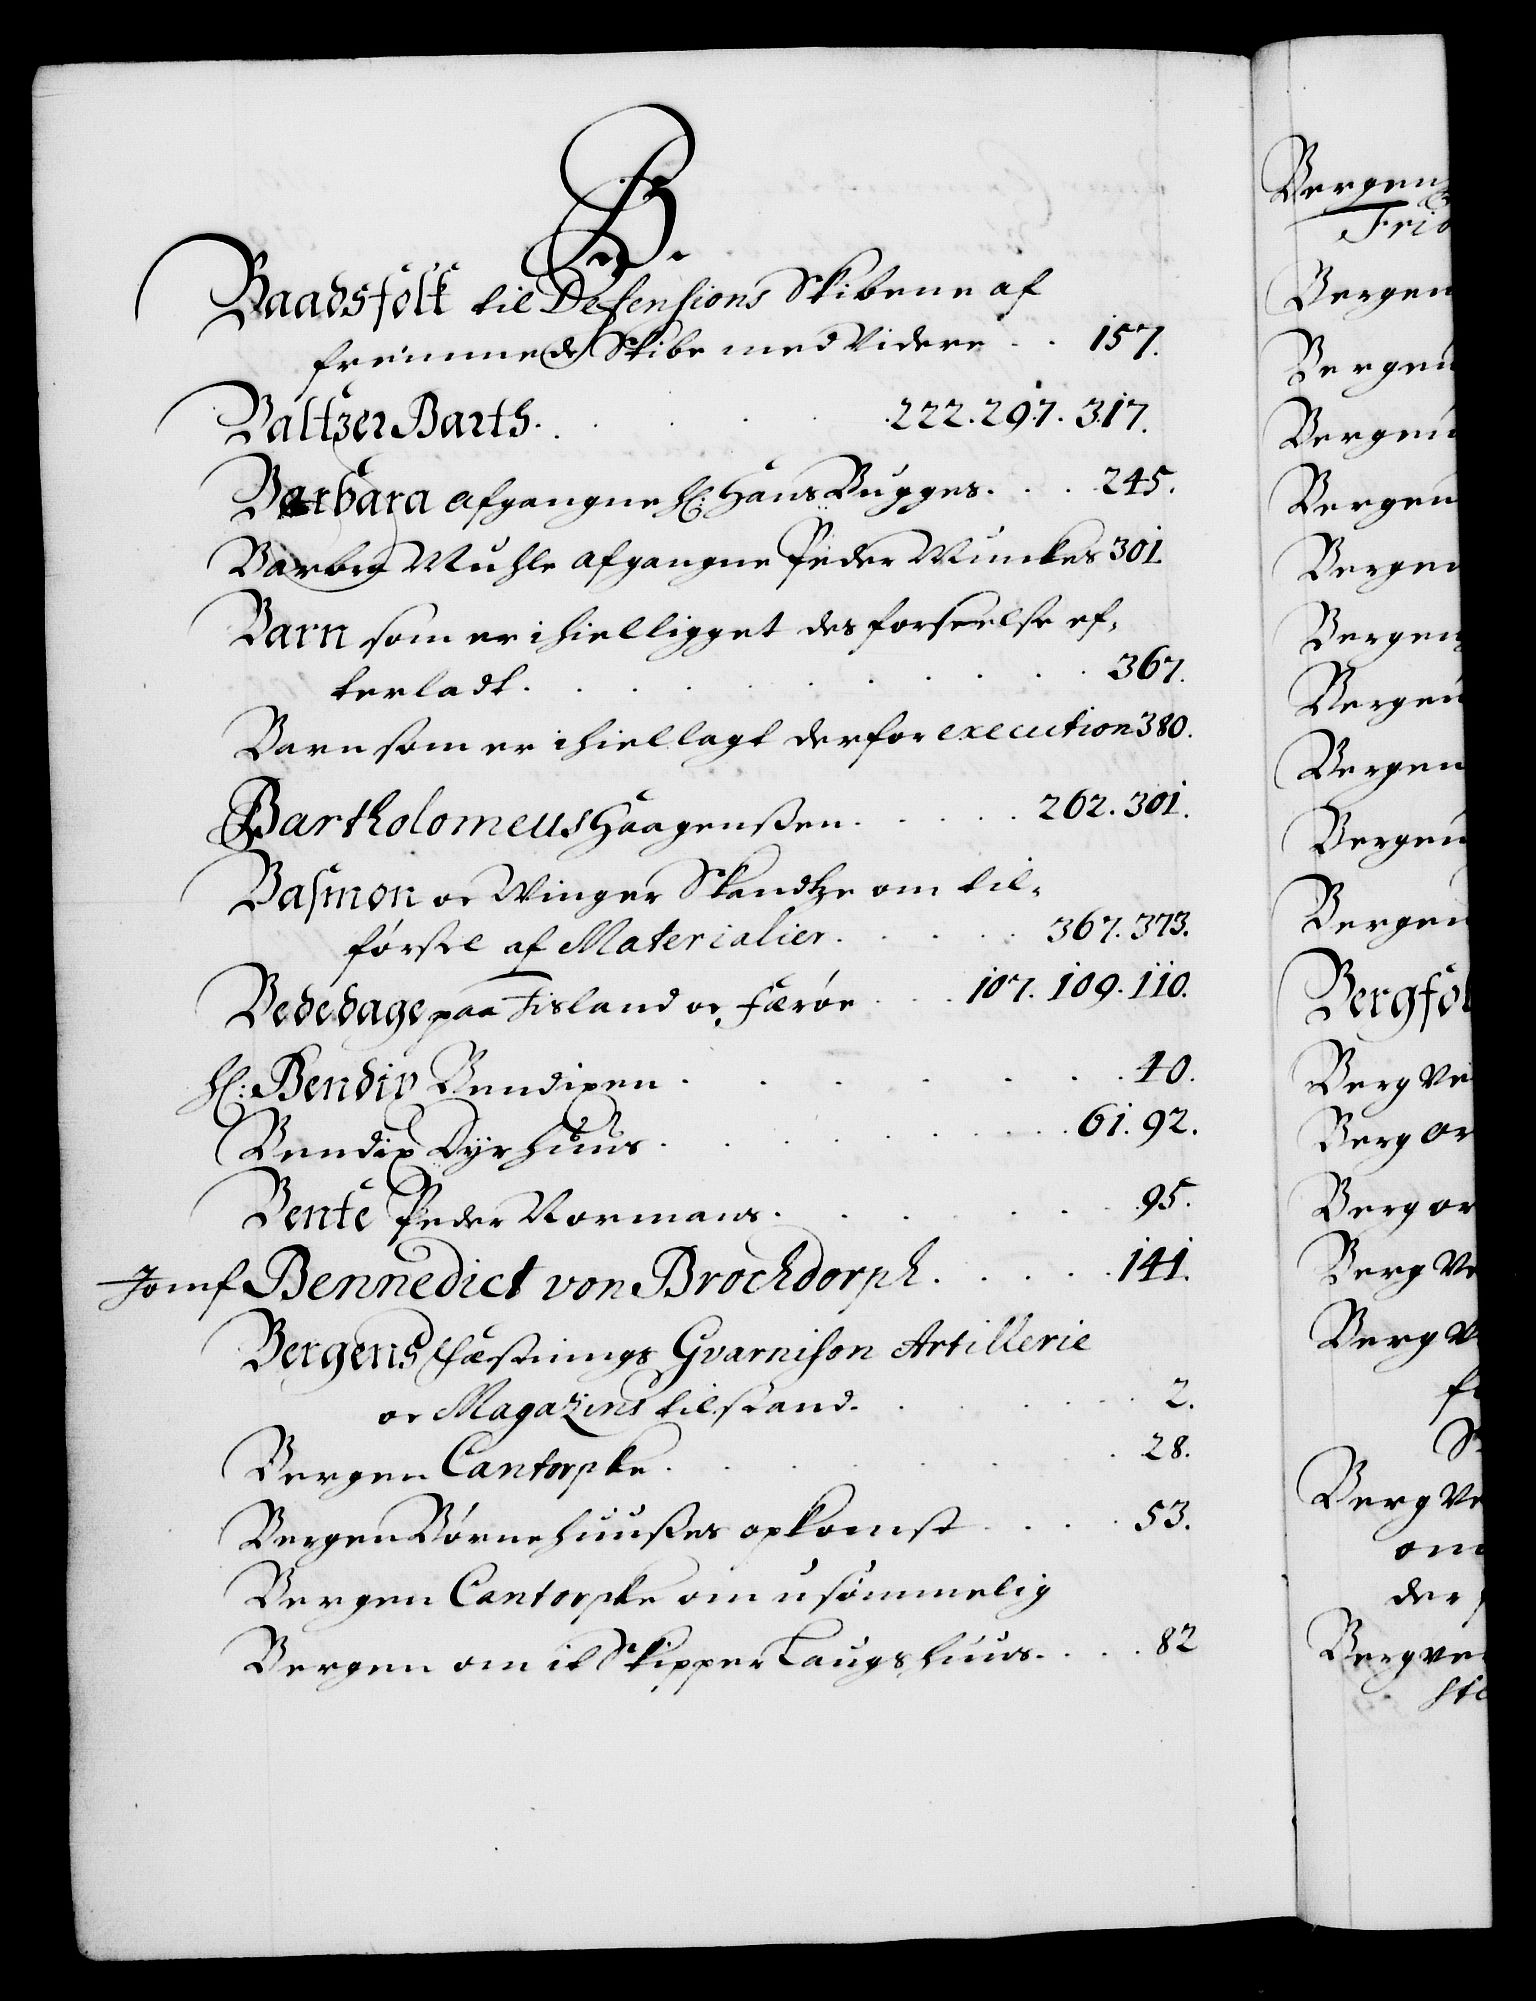 B.
Baadsfolk til Defensions Skibene af
fremmede Skibe med Videre . . 157.
Baltzer Barth. . . . . 222. 297. 317.
Barbara afgangne Hl: Hans Bugges. . . 245.
Barbra Muhle afgangne Peder Munkes 301.
Barn som er ihielligget des forseelse ef-
terladt. . . . . . . . . . 367.
Barn som er ihiellagt derfor execution 380.
Bartholomeus Haagenßen. . . . . 262. 301.
Basmon oc Winger Skandtze om til-
førsel af Materialier. . . . . 367. 373.
Bededage paa Jisland oc Færøe . . . 107. 109. 110.
Hl: Bendix Bendixen . . . . . . . 40.
Bendix Dyrhuus . . . . . . . 61. 92.
Bente Peder Normans. . . . . . . 95.
Jomf Bennedict von Brochdorph. . . . . 141.
Bergens Fæstnings Gvarnison Artillerie
oc Magazins tilstand. . . . . . 2.
Bergen Cantorske. . . . . . . 28.
Bergen Børnehuußes opkomst . . . . 53.
Bergen Cantorske om usømmelig
Bergen om it Skipper Laugshuus. . . . 82
Bergen
Frid
Bergen
Bergen
Bergen
Bergen
Bergen
Bergen
Bergen
Bergen
Bergen
Bergen
Bergfol
Berg Ve
Berg or
Berg or
Berg Ve
Berg V
Berg Ve
om
der
Berg ve